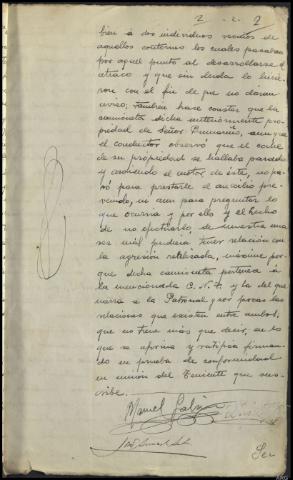 2
bién á dos individuos vecinos de
aquellos contornos los cuales pasaban
por aquel punto al desarrollarse el
atraco y que sin duda lo hicie-
ron con el fin de que no dieran
aviso; también hace constar que la
camioneta dicha anteriormente pro-
piedad de Señor aunque
el conductor observó que el coche
de su propiedad se hallaba parado
y ardiendo el motor de éste, no pa-
ró para prestarle el auxilio pre-
venido, ni aun para preguntar lo
que ocurria y por ello y el hecho
de no efectuarlo, demuestra una
vez más pudiera tener relación con
la agresión realizada, máxime por-
que dicha camioneta pertenece á
la mencionada C. N. T. y la del que
narra a la Patronal y son pocas las
relaciones que existen entre ambos,
que no tiene más que decir, en lo
que se afirma y ratifica firman-
do en prueba de conformidad
en unión del Teniente que sus-
cribe.
Manuel